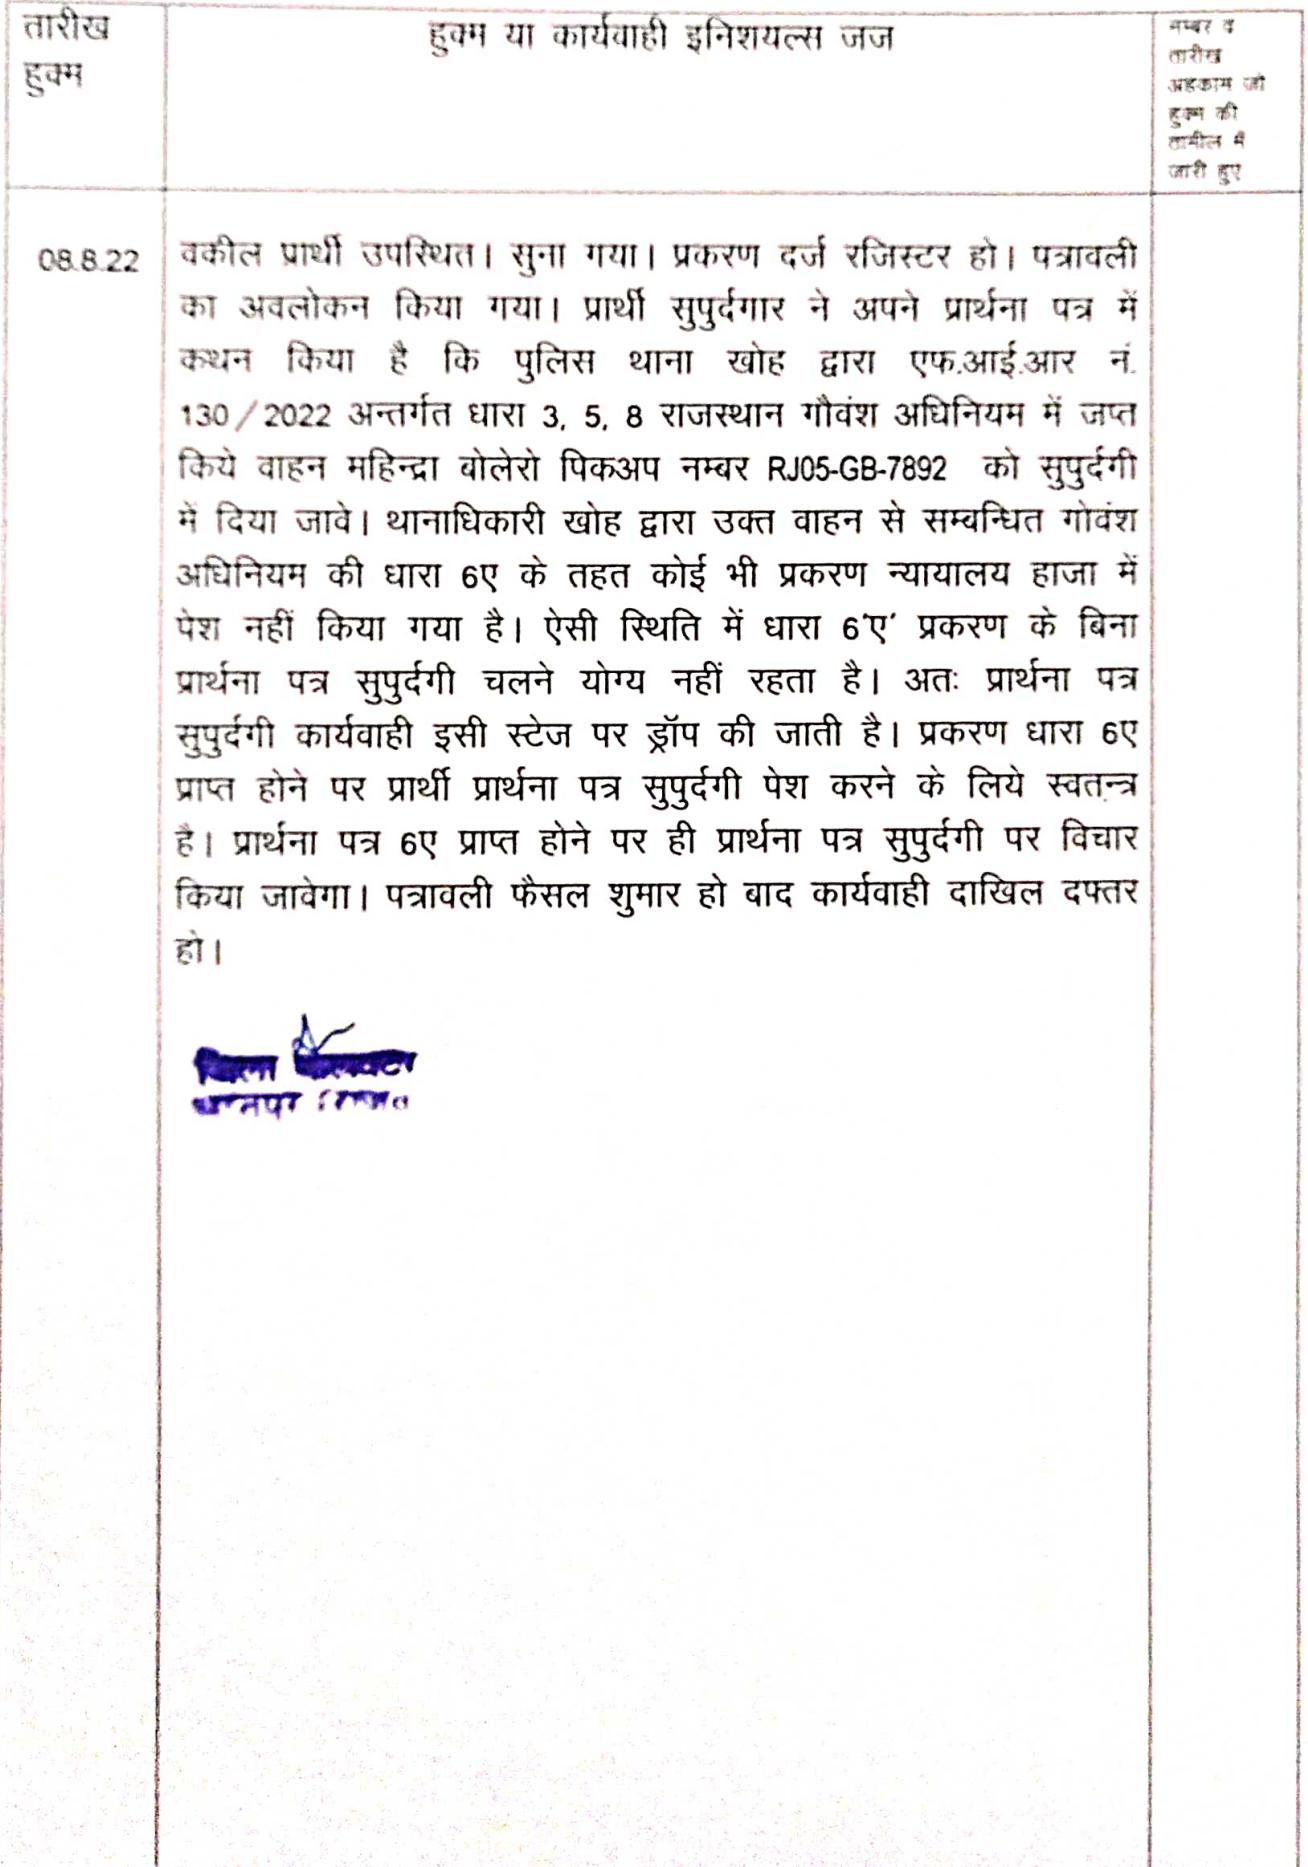 तारीख
हुक्म
हुक्म या कार्यवाही इनिशयल्स जज
नम्बर व
तारीख
अहकाम जो
हुक्म की
तामील में
जारी हुए
08.8.22
वकील प्रार्थी उपस्थित। सुना गया। प्रकरण दर्ज रजिस्टर हो। पत्रावली
का अवलोकन किया गया। प्रार्थी सुपुर्दगार ने अपने प्रार्थना पत्र में
कथन किया है कि पुलिस थाना खोह द्वारा एफ.आई.आर नं.
130/2022 अन्तर्गत धारा 3, 5, 8 राजस्थान गौवंश अधिनियम में जप्त
किये वाहन महिन्द्रा बोलेरो पिकअप नम्बर RJ05-GB-7892 को सुपुर्दगी
में दिया जावे। थानाधिकारी खोह द्वारा उक्त वाहन से सम्बन्धित गोवंश
अधिनियम की धारा 6ए के तहत कोई भी प्रकरण न्यायालय हाजा में
पेश नहीं किया गया है। ऐसी स्थिति में धारा 6'ए' प्रकरण के बिना
प्रार्थना पत्र सुपुर्दगी चलने योग्य नहीं रहता है। अतः प्रार्थना पत्र
सुपुर्दगी कार्यवाही इसी स्टेज पर ड्रॉप की जाती है। प्रकरण धारा 6ए
प्राप्त होने पर प्रार्थी प्रार्थना पत्र सुपुर्दगी पेश करने के लिये स्वतन्त्र
है। प्रार्थना पत्र 6ए प्राप्त होने पर ही प्रार्थना पत्र सुपुर्दगी पर विचार
किया जावेगा। पत्रावली फैसल शुमार हो बाद कार्यवाही दाखिल दफ्तर
हो।
जिला कलक्टर